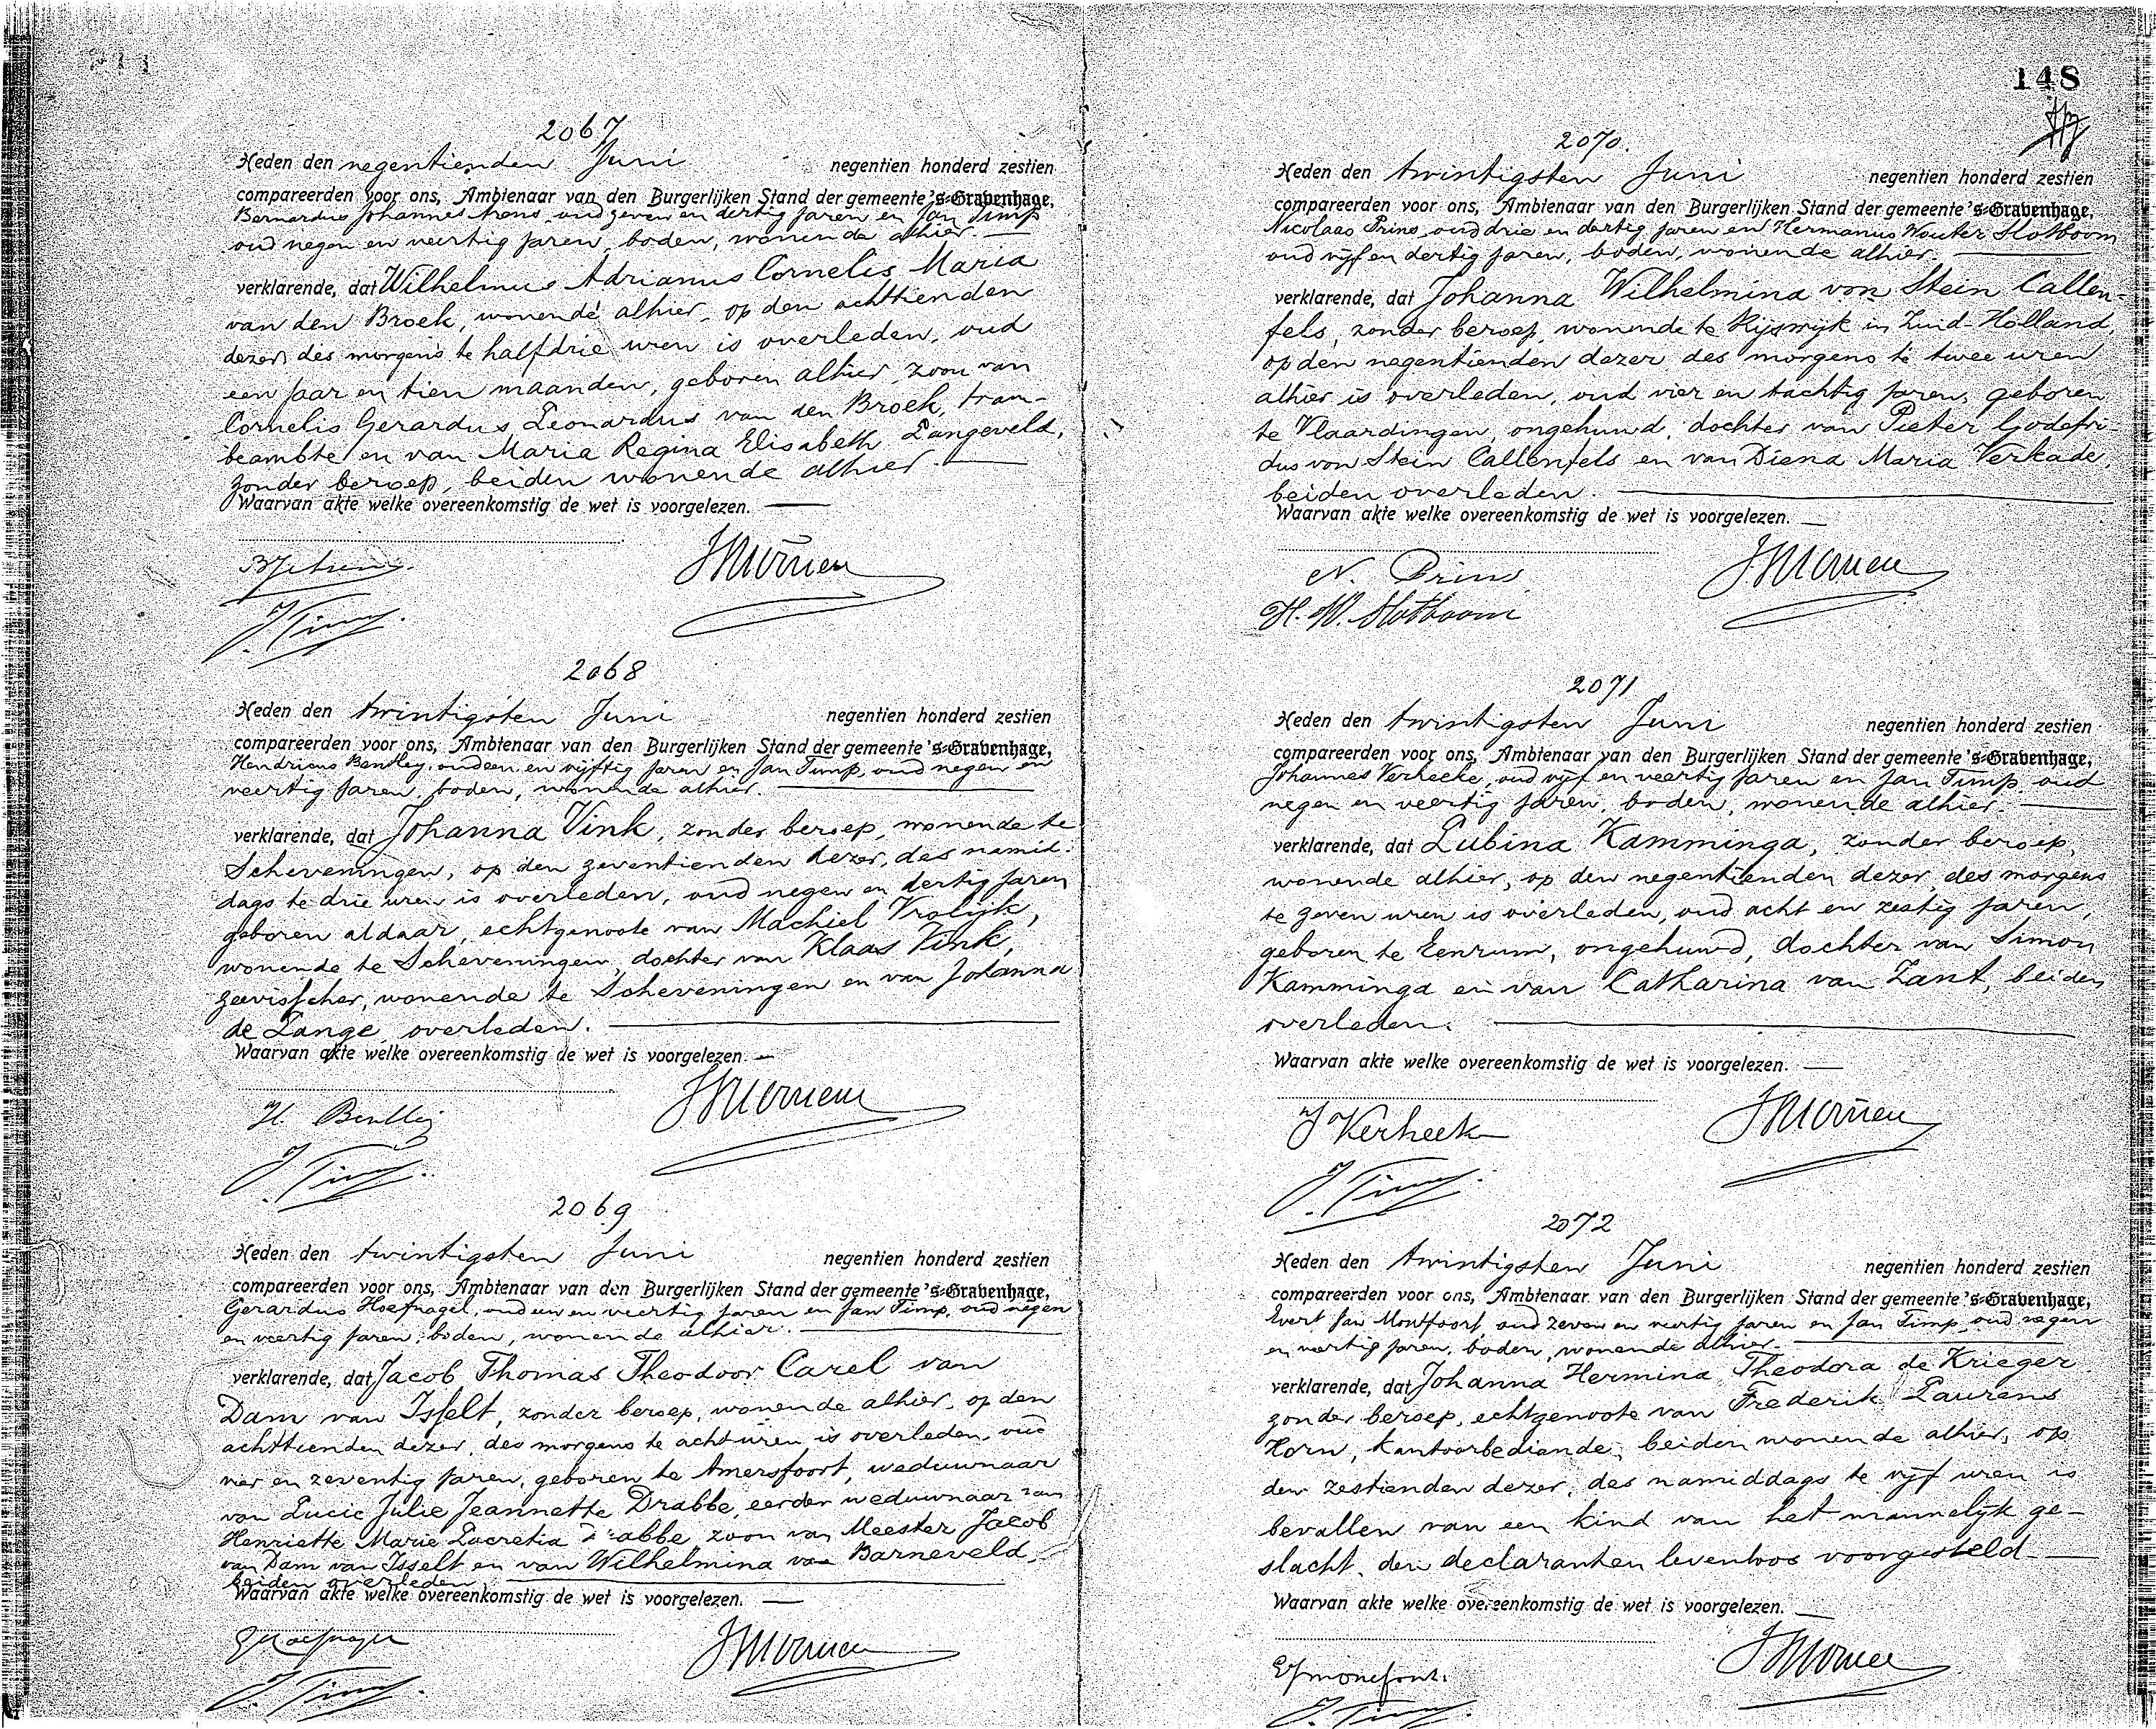 2067
Heden den negentienden Juni negentien honderd zestien
compareerden voor ons, Ambtenaar van den Burgerlijken Stand der gemeente 's-Gravenhage,
Bernardus Johannes oud zeven en dertig jaren en Jan Timp
oud negen en veertig jaren, boden, wonende alhier.
verklarende, dat Wilhelmus Adrianus Cornelis Maria
van den Broek, wonende alhier, op den achttienden
dezer des morgens te halfdrie uren is overleden, oud
een jaar en tien maanden, geboren alhier, zoon van
Cornelis Gerardus Leonardus van den Broek, tram-
beambte en van Maria Regina Elisabeth Langeveld,
zonder beroep, beiden wonende alhier.
Waarvan akte welke overeenkomstig de wet is voorgelezen.
J Timp
2068
Heden den twintigsten Juni negentien honderd zestien
compareerden voor ons, Ambtenaar van den Burgerlijken Stand der gemeente 's-Gravenhage,
Hendrianus Bentley, oud een en vijftig jaren en Jan Timp, oud negen en
veertig jaren, boden, wonende alhier.
verklarende, dat Johanna Vink, zonder beroep, wonende te
Scheveningen, op den zeventienden dezer, des namid-
dags te drie uren is overleden, oud negen en dertig jaren
geboren aldaar, echtgenoote van Machiel Vrolijk,
wonende te Scheveningen, dochter van Klaas Vink,
zeevisscher, wonende te Scheveningen en van Johanna
de Lange, overleden.
Waarvan akte welke overeenkomstig de wet is voorgelezen.
H. Bentley
J. Timp
2069
Heden den twintigsten Juni negentien honderd zestien
compareerden voor ons, Ambtenaar van den Burgerlijken Stand der gemeente 's-Gravenhage,
Gerardus Hoefnagel, oud een en veertig jaren en Jan Timp, oud negen
en veertig jaren, boden, wonende alhier.
verklarende, dat Jacob Thomas Theodoor Carel van
Dam van Isselt, zonder beroep, wonende alhier, op den
achttienden dezer, des morgens te acht uren is overleden, oud
vier en zeventig jaren, geboren te Amersfoort, weduwnaar
van Lucie Julie Jeannette Drabbe, eerder weduwnaar van
Henriette Marie Lucretia Drabbe, zoon van Meester Jacob
van Dam van Isselt en van Wilhelmina van Barneveld,
beiden overleden.
Waarvan akte welke overeenkomstig de wet is voorgelezen.
G Hoefnagel
J. Timp
148
2070.
Heden den twintigsten Juni negentien honderd zestien
compareerden voor ons, Ambtenaar van den Burgerlijken Stand der gemeente 's-Gravenhage,
Nicolaas Prins, oud drie en dertig jaren en Hermanus Wouter Slotboom
oud vijf en dertig jaren, boden, wonende alhier.
verklarende, dat Johanna Wilhelmina von Stein Callen-
fels, zonder beroep, wonende te Rijswijk in Zuid-Holland,
op den negentienden dezer des morgens te twee uren
alhier is overleden, oud vier en tachtig jaren, geboren
te Vlaardingen, ongehuwd, dochter van Pieter Godefri-
dus von Stein Callenfels en van Diena Maria Verkade,
beiden overleden.
Waarvan akte welke overeenkomstig de wet is voorgelezen.
N. Prins
H. W. Slotboom
2071
Heden den twintigsten Juni negentien honderd zestien
compareerden voor ons, Ambtenaar van den Burgerlijken Stand der gemeente 's-Gravenhage,
Johannes Verheeke, oud vijf en veertig jaren en Jan Timp, oud
negen en veertig jaren, boden, wonende alhier.
verklarende, dat Lubina Kamminga, zonder beroep,
wonende alhier, op den negentienden dezer, des morgens
te zeven uren is overleden, oud acht en zestig jaren,
geboren te Eenrum, ongehuwd, dochter van Simon
Kamminga en van Catharina van Zant, beiden
overleden.
Waarvan akte welke overeenkomstig de wet is voorgelezen.
J Verheeke
J. Timp
2072
Heden den twintigsten Juni negentien honderd zestien
compareerden voor ons, Ambtenaar van den Burgerlijken Stand der gemeente 's-Gravenhage,
Evert Jan Montfoort, oud zeven en veertig jaren en Jan Timp, oud negen
en veertig jaren, boden, wonende alhier.
verklarende, dat Johanna Hermina Theodora de Krieger
zonder beroep, echtgenoote van Frederik Laurens
Horn, kantoorbediende, beiden wonende alhier, op
den zestienden dezer, des namiddags te vijf uren is
bevallen van een kind van het mannelijk ge-
slacht, den declaranten levenloos voorgesteld.
Waarvan akte welke overeenkomstig de wet is voorgelezen.
EJ Montfoort.
J. Timp